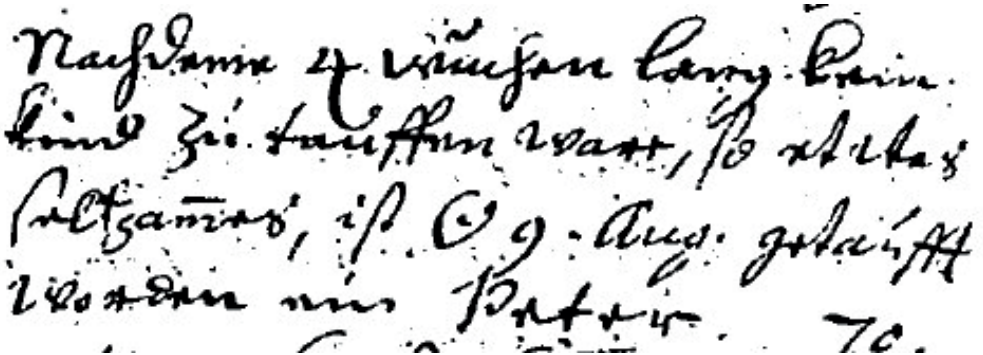 Nachdeme 4 wuchen lang kein
kind zu tauffen ware, so etwas
seltzam̅es, ist ☉ 9. Aug. getaufft
worden ein Peter.